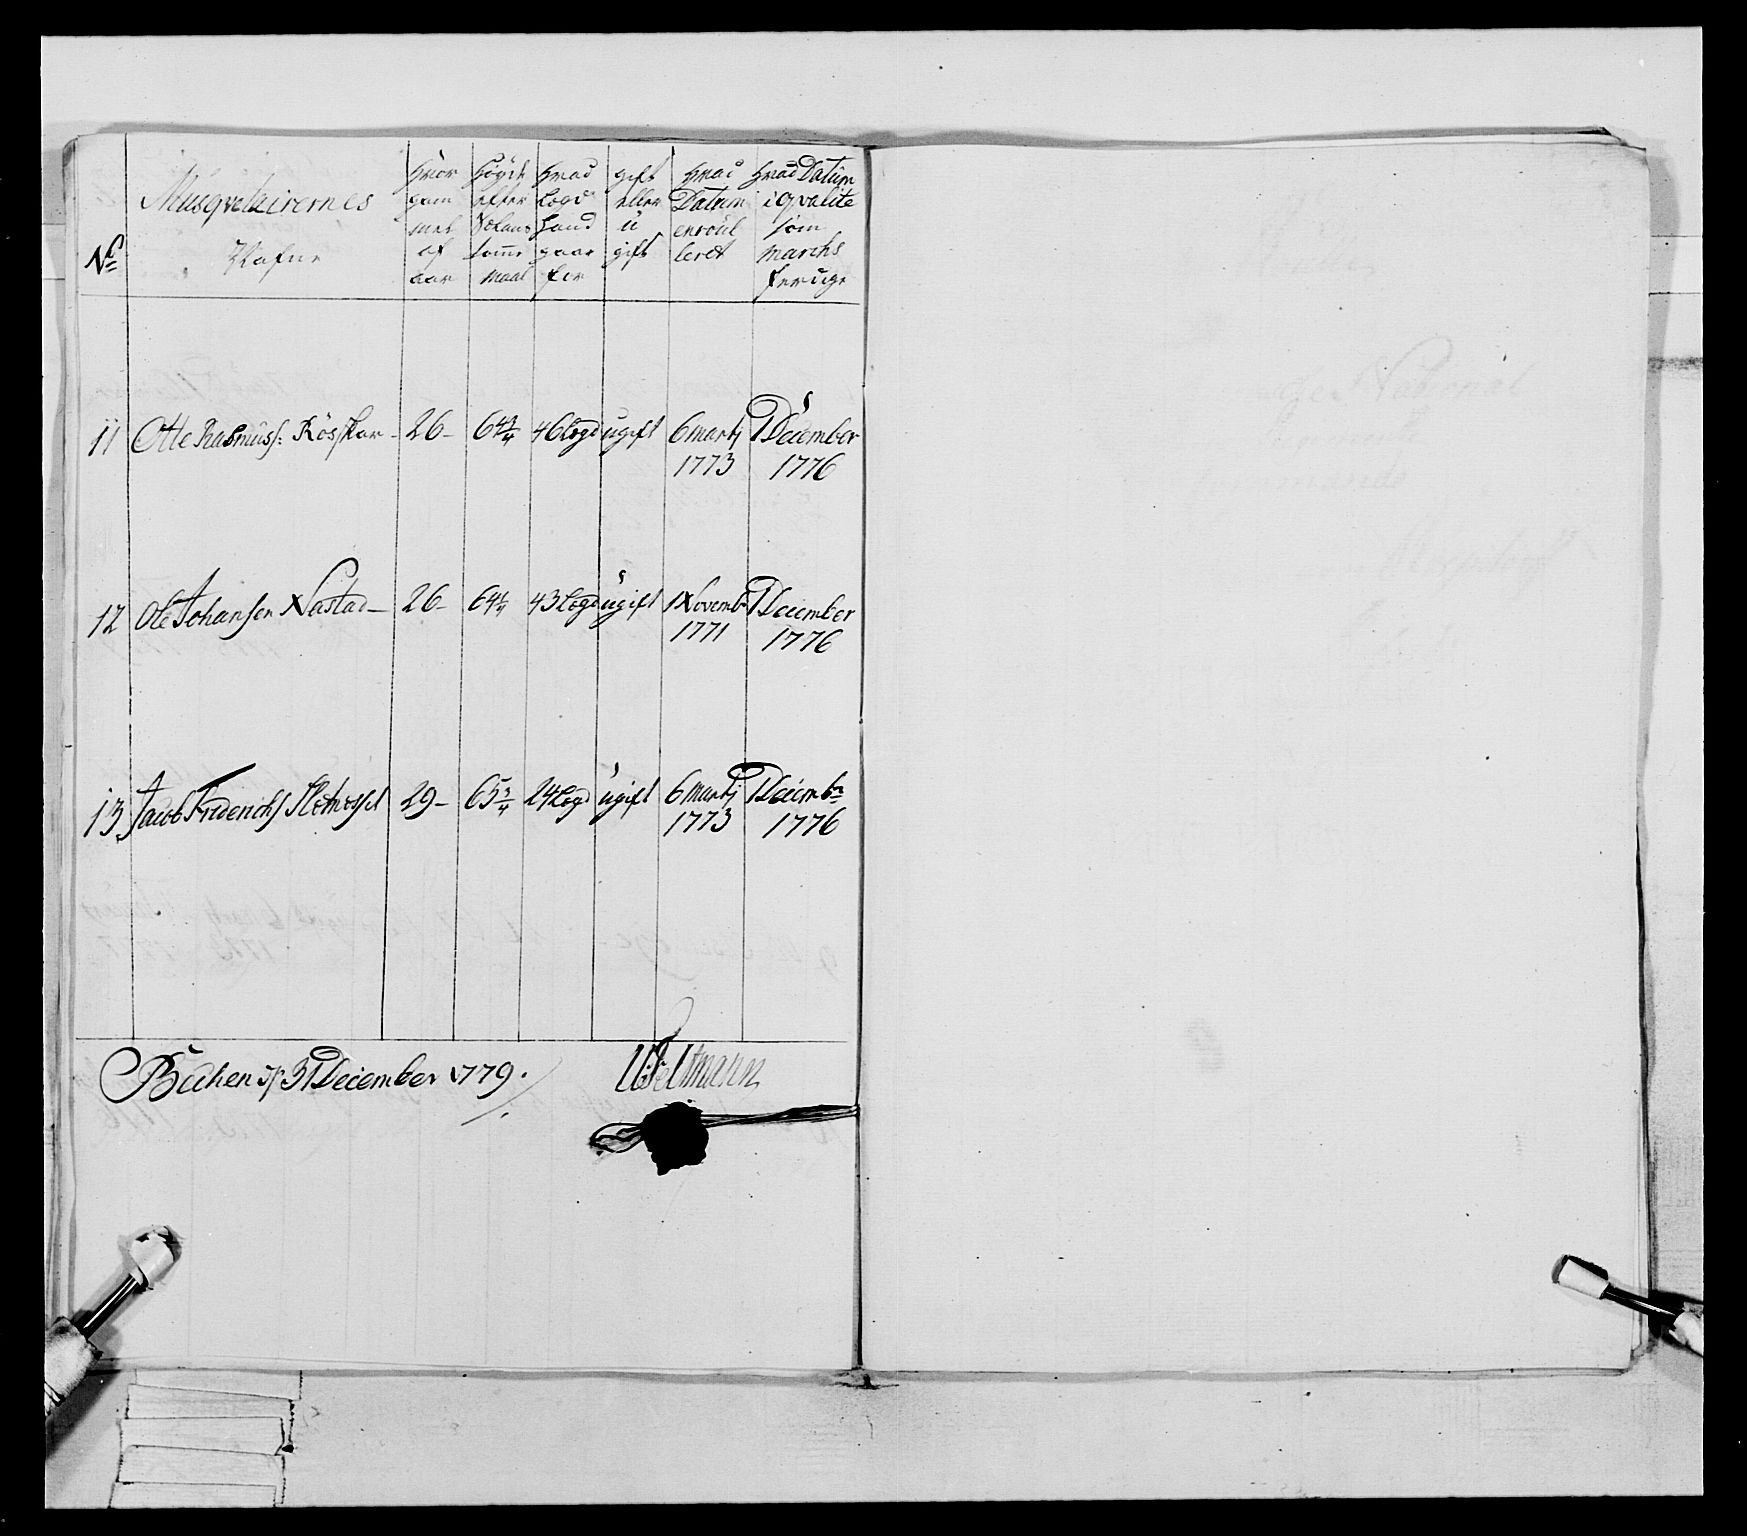 No Musqveteirernes Nafne
hvor gammel af aar
Höyde efter Tolans tomme Maal
hvad Logd Hand gaar for
gift eller ugift
hvad Datum enroulleret
hvad Datum i qvalite som marchferuge
11 Otte Rasmuss: Rösskar - 26 - 64 3/4 46 Logd ugift 6 Martj 1773 1 December 1776
12 Ole Johansen Nastad - 26 - 64 1/4 43 Logd ugift 1 Novemb 1771 1 December 1776
13 Jacob Friderichs 29 - 65 3/4 24 Logd ugift 6 Martj 1773 1 Decembr 1776
31 December 1779.